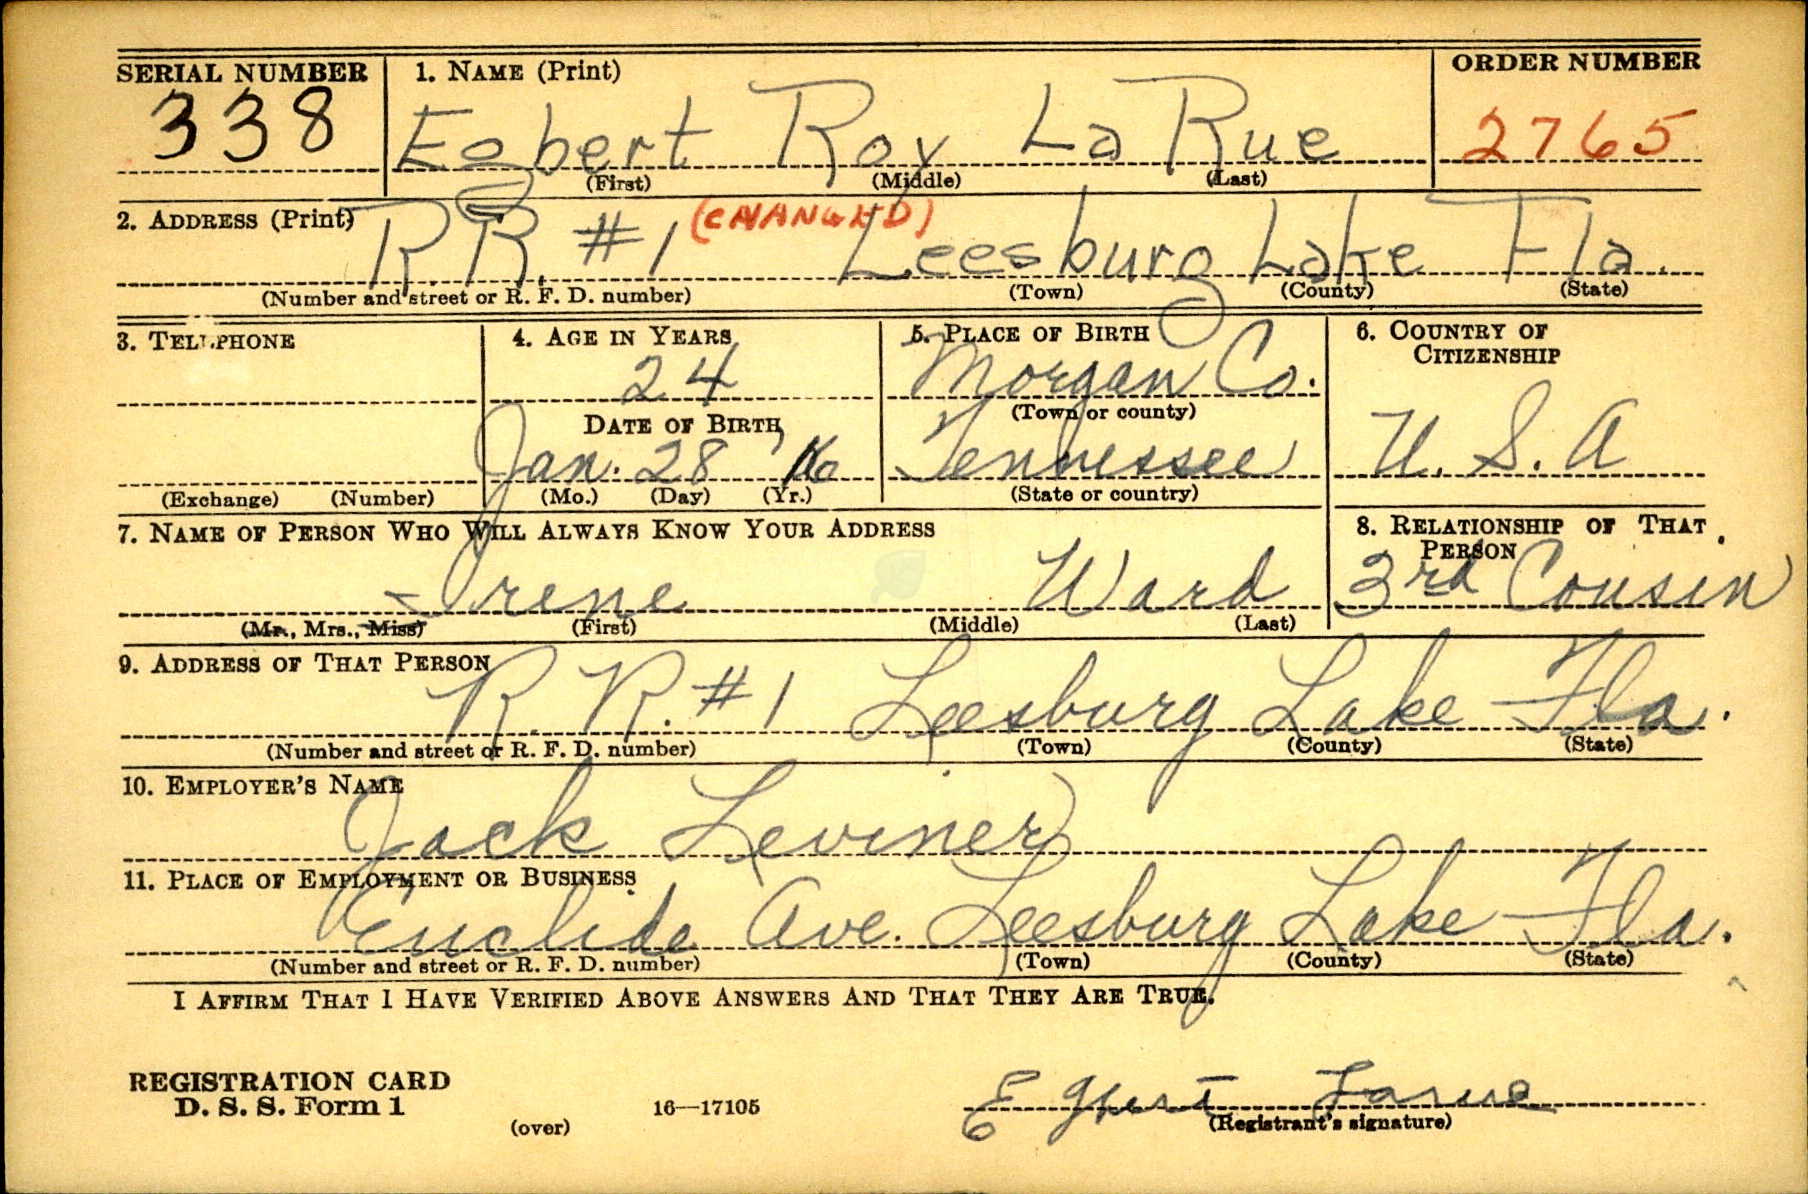 SERIAL NUMBER
338
1. NAME (Print)
Egbert Roy La Rue
(First) (Middle) (Last)
ORDER NUMBER
2765
2. ADDRESS (Print)
(CHANGED)
R.R. #1 Leesburg Lake Fla.
(Number and street or R. F. D. number) (Town) (County) (State)
3. TELEPHONE
(Exchange) (Number)
4. AGE IN YEARS
24
DATE OF BIRTH
Jan. 28 '16
(Mo.) (Day) (Yr.)
5. PLACE OF BIRTH
Morgan Co.
(Town or county)
Tennessee
(State or country)
6. COUNTRY OF
CITIZENSHIP
U. S. A
7. NAME OF PERSON WHO WILL ALWAYS KNOW YOUR ADDRESS
Irene Ward
(Mr., Mrs., Miss) (First) (Middle) (Last)
8. RELATIONSHIP OF THAT
PERSON
3rd Cousin
9. ADDRESS OF THAT PERSON
R. R. #1 Leesburg Lake Fla.
(Number and street or R. F. D. number) (Town) (County) (State)
10. EMPLOYER'S NAME
Jack Leviner
11. PLACE OF EMPLOYMENT OR BUSINESS
Euclide Ave. Leesburg Lake Fla.
(Number and street or R. F. D. number) (Town) (County) (State)
I AFFIRM THAT I HAVE VERIFIED ABOVE ANSWERS AND THAT THEY ARE TRUE.
REGISTRATION CARD
D. S. S. Form 1
(over)
16—17105
Egbert Larue
(Registrant's signature)